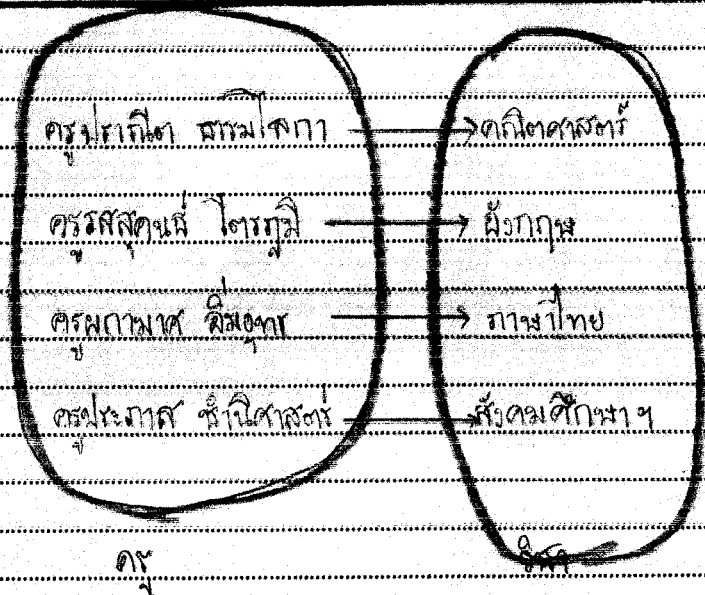 ครูปราณีต ธรรมโลกา คณิตศาสตร์
ครูรสสุคนธ์ ไตรภูมิ อังกฤษ
ครูผกามาศ ภาษาไทย
ครูประภาส ชำนิศาสตร์ สังคมศึกษาฯ
ครู วิชา